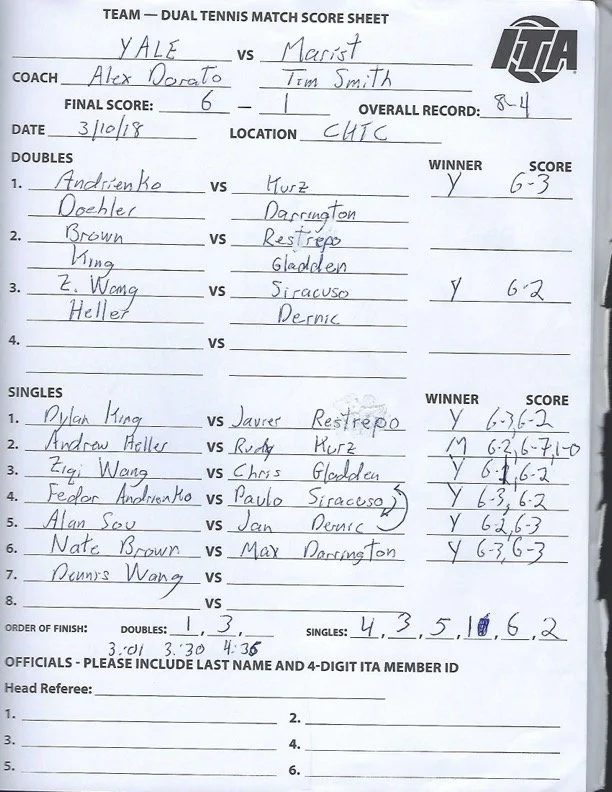 TEAM — DUAL TENNIS MATCH SCORE SHEET
ITA
YALE VS Marist
COACH Alex Dorato Tim Smith
FINAL SCORE: 6 — 1 OVERALL RECORD: 8-4
DATE 3/10/18 LOCATION CHTC
DOUBLES WINNER SCORE
1. Andrienko VS Kurz Y 6-3
Dochler Darrington
2. Brown VS Restrepo
King Gladden
3. Z. Wang VS Siracuso Y 6-2
Heller Dernic
4. VS
SINGLES WINNER SCORE
1. Dylan King VS Javier Restrepo Y 6-3,6-2
2. Andrew Heller VS Rudy Kurz M 6-2,6-7,1-0
3. Ziqi Wang VS Chris Gladden Y 6-1,6-2
4. Fedor Andrienko VS Paulo Siracuso Y 6-3, 6-2
5. Alan Sou VS Jan Dernic Y 6-2,6-3
6. Nate Brown VS Max Darrington Y 6-3,6-3
7. Dennis Wang VS
8. VS
ORDER OF FINISH: DOUBLES: 1, 3, SINGLES: 4, 3, 5, 1, 6, 2
3:01 3:30 4:35
OFFICIALS - PLEASE INCLUDE LAST NAME AND 4-DIGIT ITA MEMBER ID
Head Referee:
1. 2.
3. 4.
5. 6.